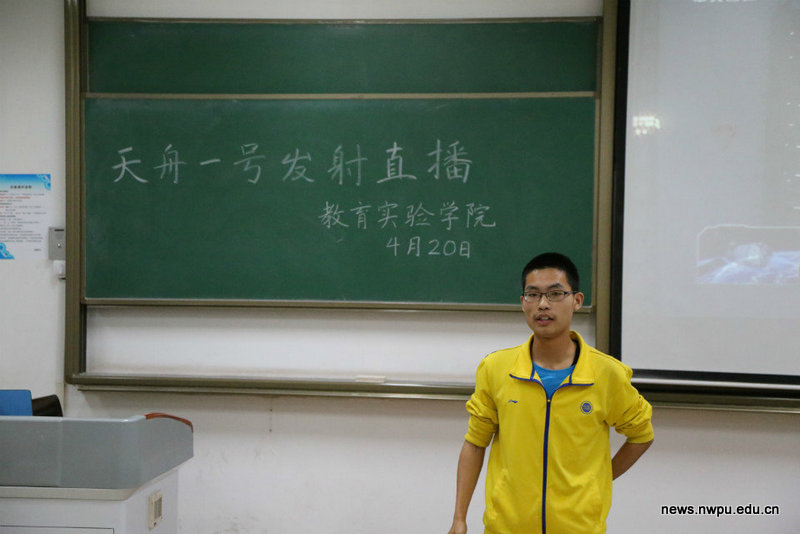 天舟一号发射直播
教育实验学院
4月20日
news.nwpu.edu.cn